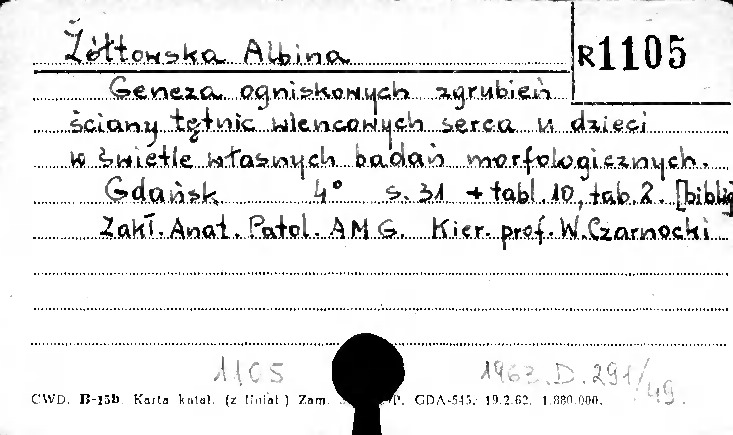 Żółtowska Albina
R1105
Geneza ogniskowych zgrubień
ściany tętnic wieńcowych serca u dzieci
w świetle własnych badań morfologicznych.
Gdańsk 4° s. 31 + tabl. 10, tab. 2. [biblig
Zakł. Anat. Patol. AMG. Kier. prof. W. Czarnocki
1105 1963.D.291/49.
CWD. B-15b. Karta katal. (z liniat.) Zam. P. GDA-545. 19.2.62. 1.880.000.